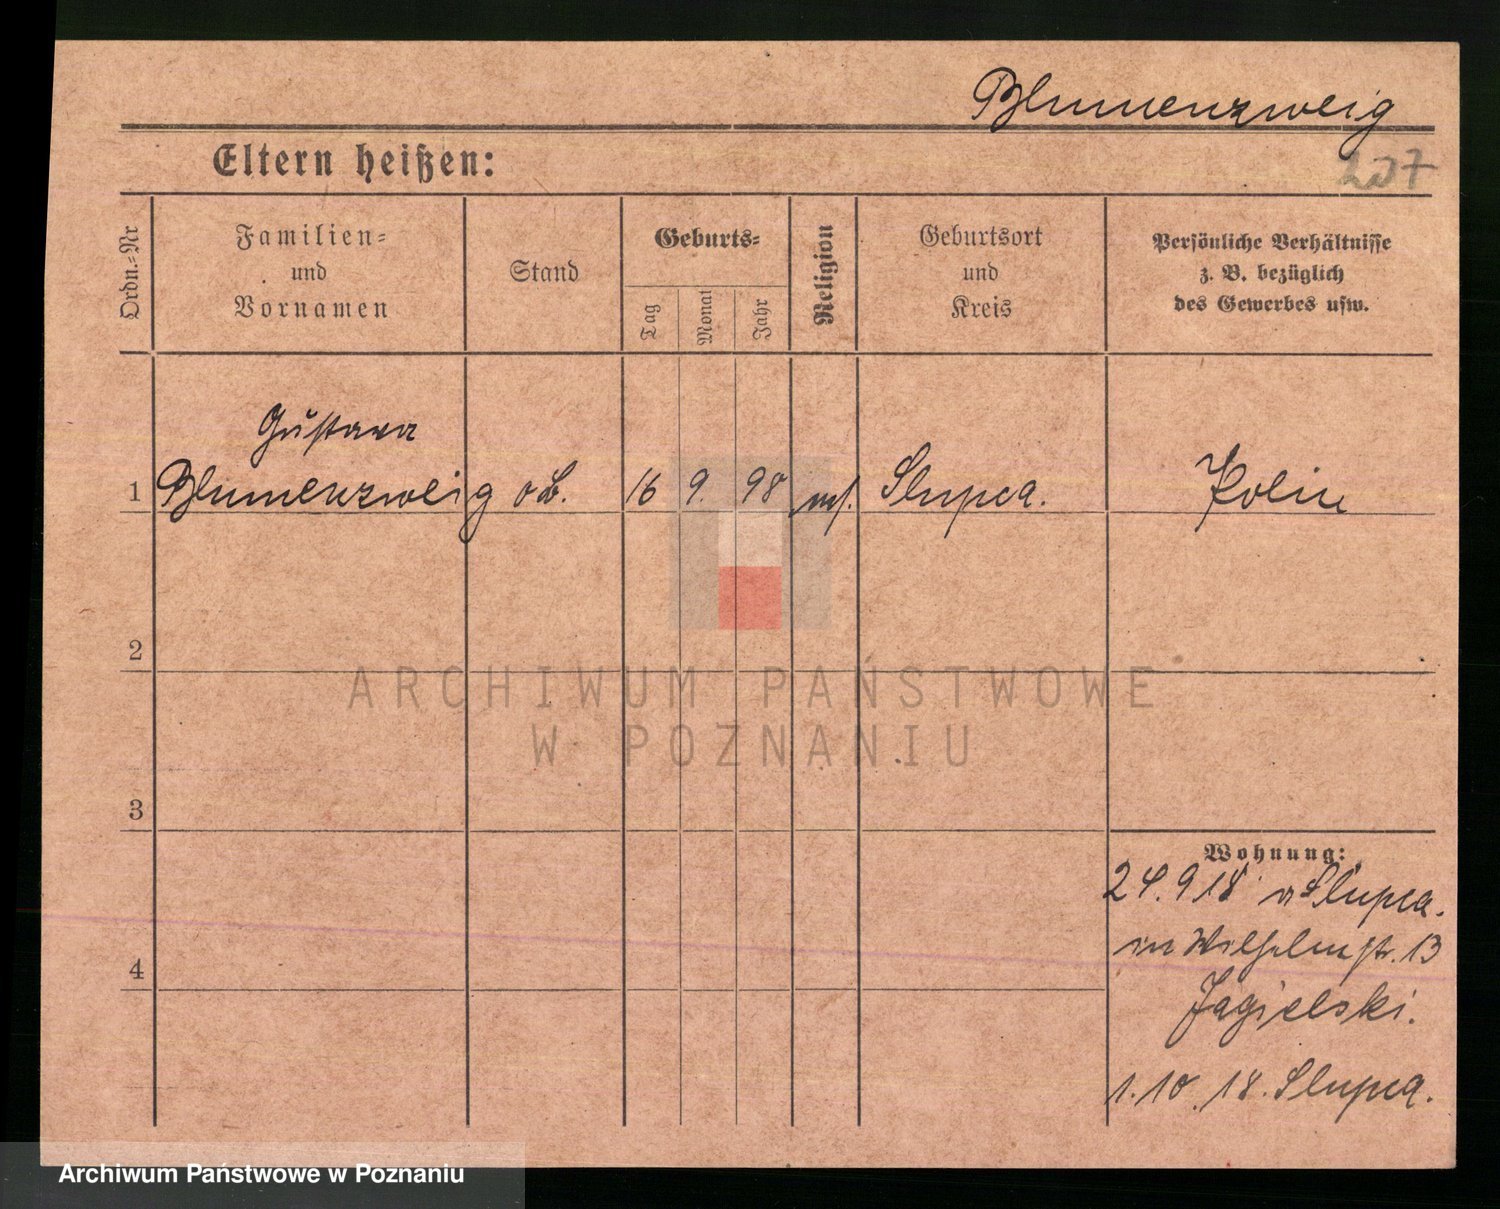 Blumenzweig
Eltern heißen:
207
Ordn.-Nr
Familien-
und
Vornamen
Stand
Geburts-
Tag
Monat
Jahr
Religion
Geburtsort
und
Kreis
Persönliche Verhältnisse
z. B. bezüglich
des Gewerbes usw.
Gustava
1 Blumenzweig o.B. 16 9. 98 Slupca. Polin
2
ARCHIWUM PAŃSTWOWE
W POZNANIU
3
Wohnung:
24.9.18 v Slupca.
in Wilhelmstr. 13
4
Jagielski.
1.10.18. Slupca.
Archiwum Państwowe w Poznaniu